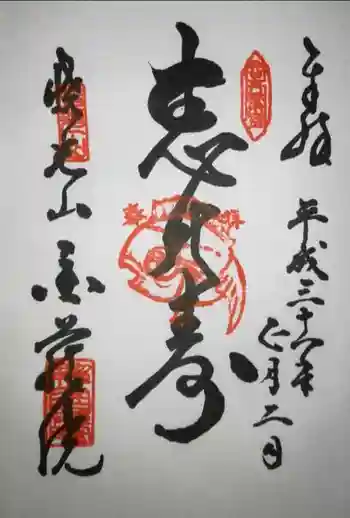 奉拝
平成三十一年
正月二日
恵比寿
光山 金蔵院